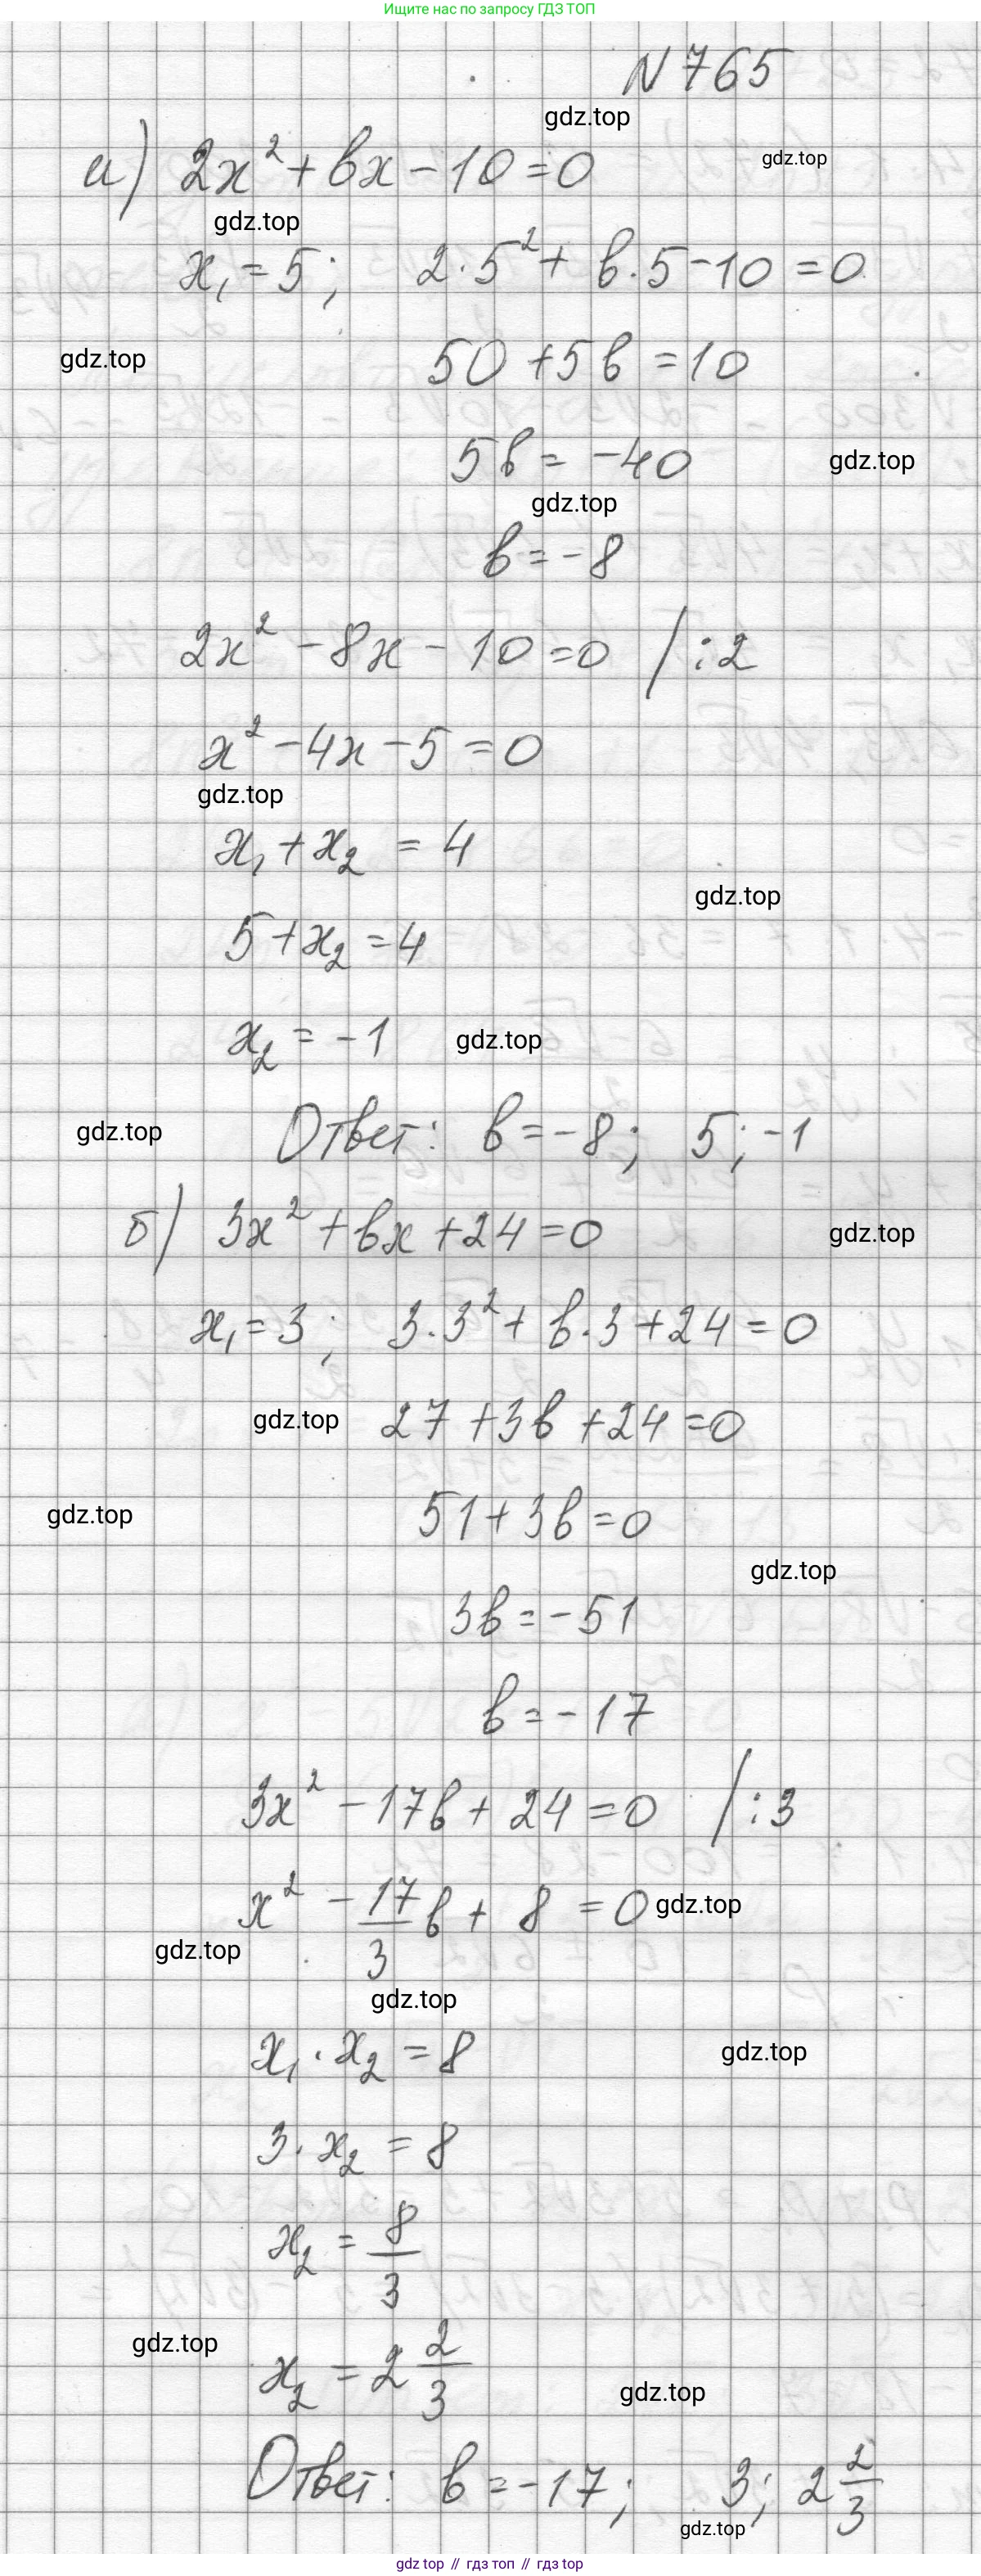 Ищите нас по запросу ГДЗ ТОП
N 765
gdz.top
а) 2x² + bx - 10 = 0
gdz.top
gdz.top
x₁ = 5; 2·5² + b·5 - 10 = 0
gdz.top
50 + 5b = 10
5b = -40
gdz.top
gdz.top
b = -8
2x² - 8x - 10 = 0 /:2
x² - 4x - 5 = 0
gdz.top
x₁ + x₂ = 4
gdz.top
5 + x₂ = 4
x₂ = -1
gdz.top
gdz.top
Ответ: b = -8; 5; -1
б) 3x² + bx + 24 = 0
gdz.top
x₁ = 3; 3·3² + b·3 + 24 = 0
gdz.top
27 + 3b + 24 = 0
gdz.top
51 + 3b = 0
gdz.top
3b = -51
b = -17
3x² - 17b + 24 = 0 /:3
x² - 17/3 b + 8 = 0
gdz.top
gdz.top
gdz.top
x₁ · x₂ = 8
gdz.top
3 · x₂ = 8
x₂ = 8/3
gdz.top
x₂ = 2 2/3
gdz.top
Ответ: b = -17; 3; 2 2/3
gdz.top
gdz top // гдз топ // гдз top